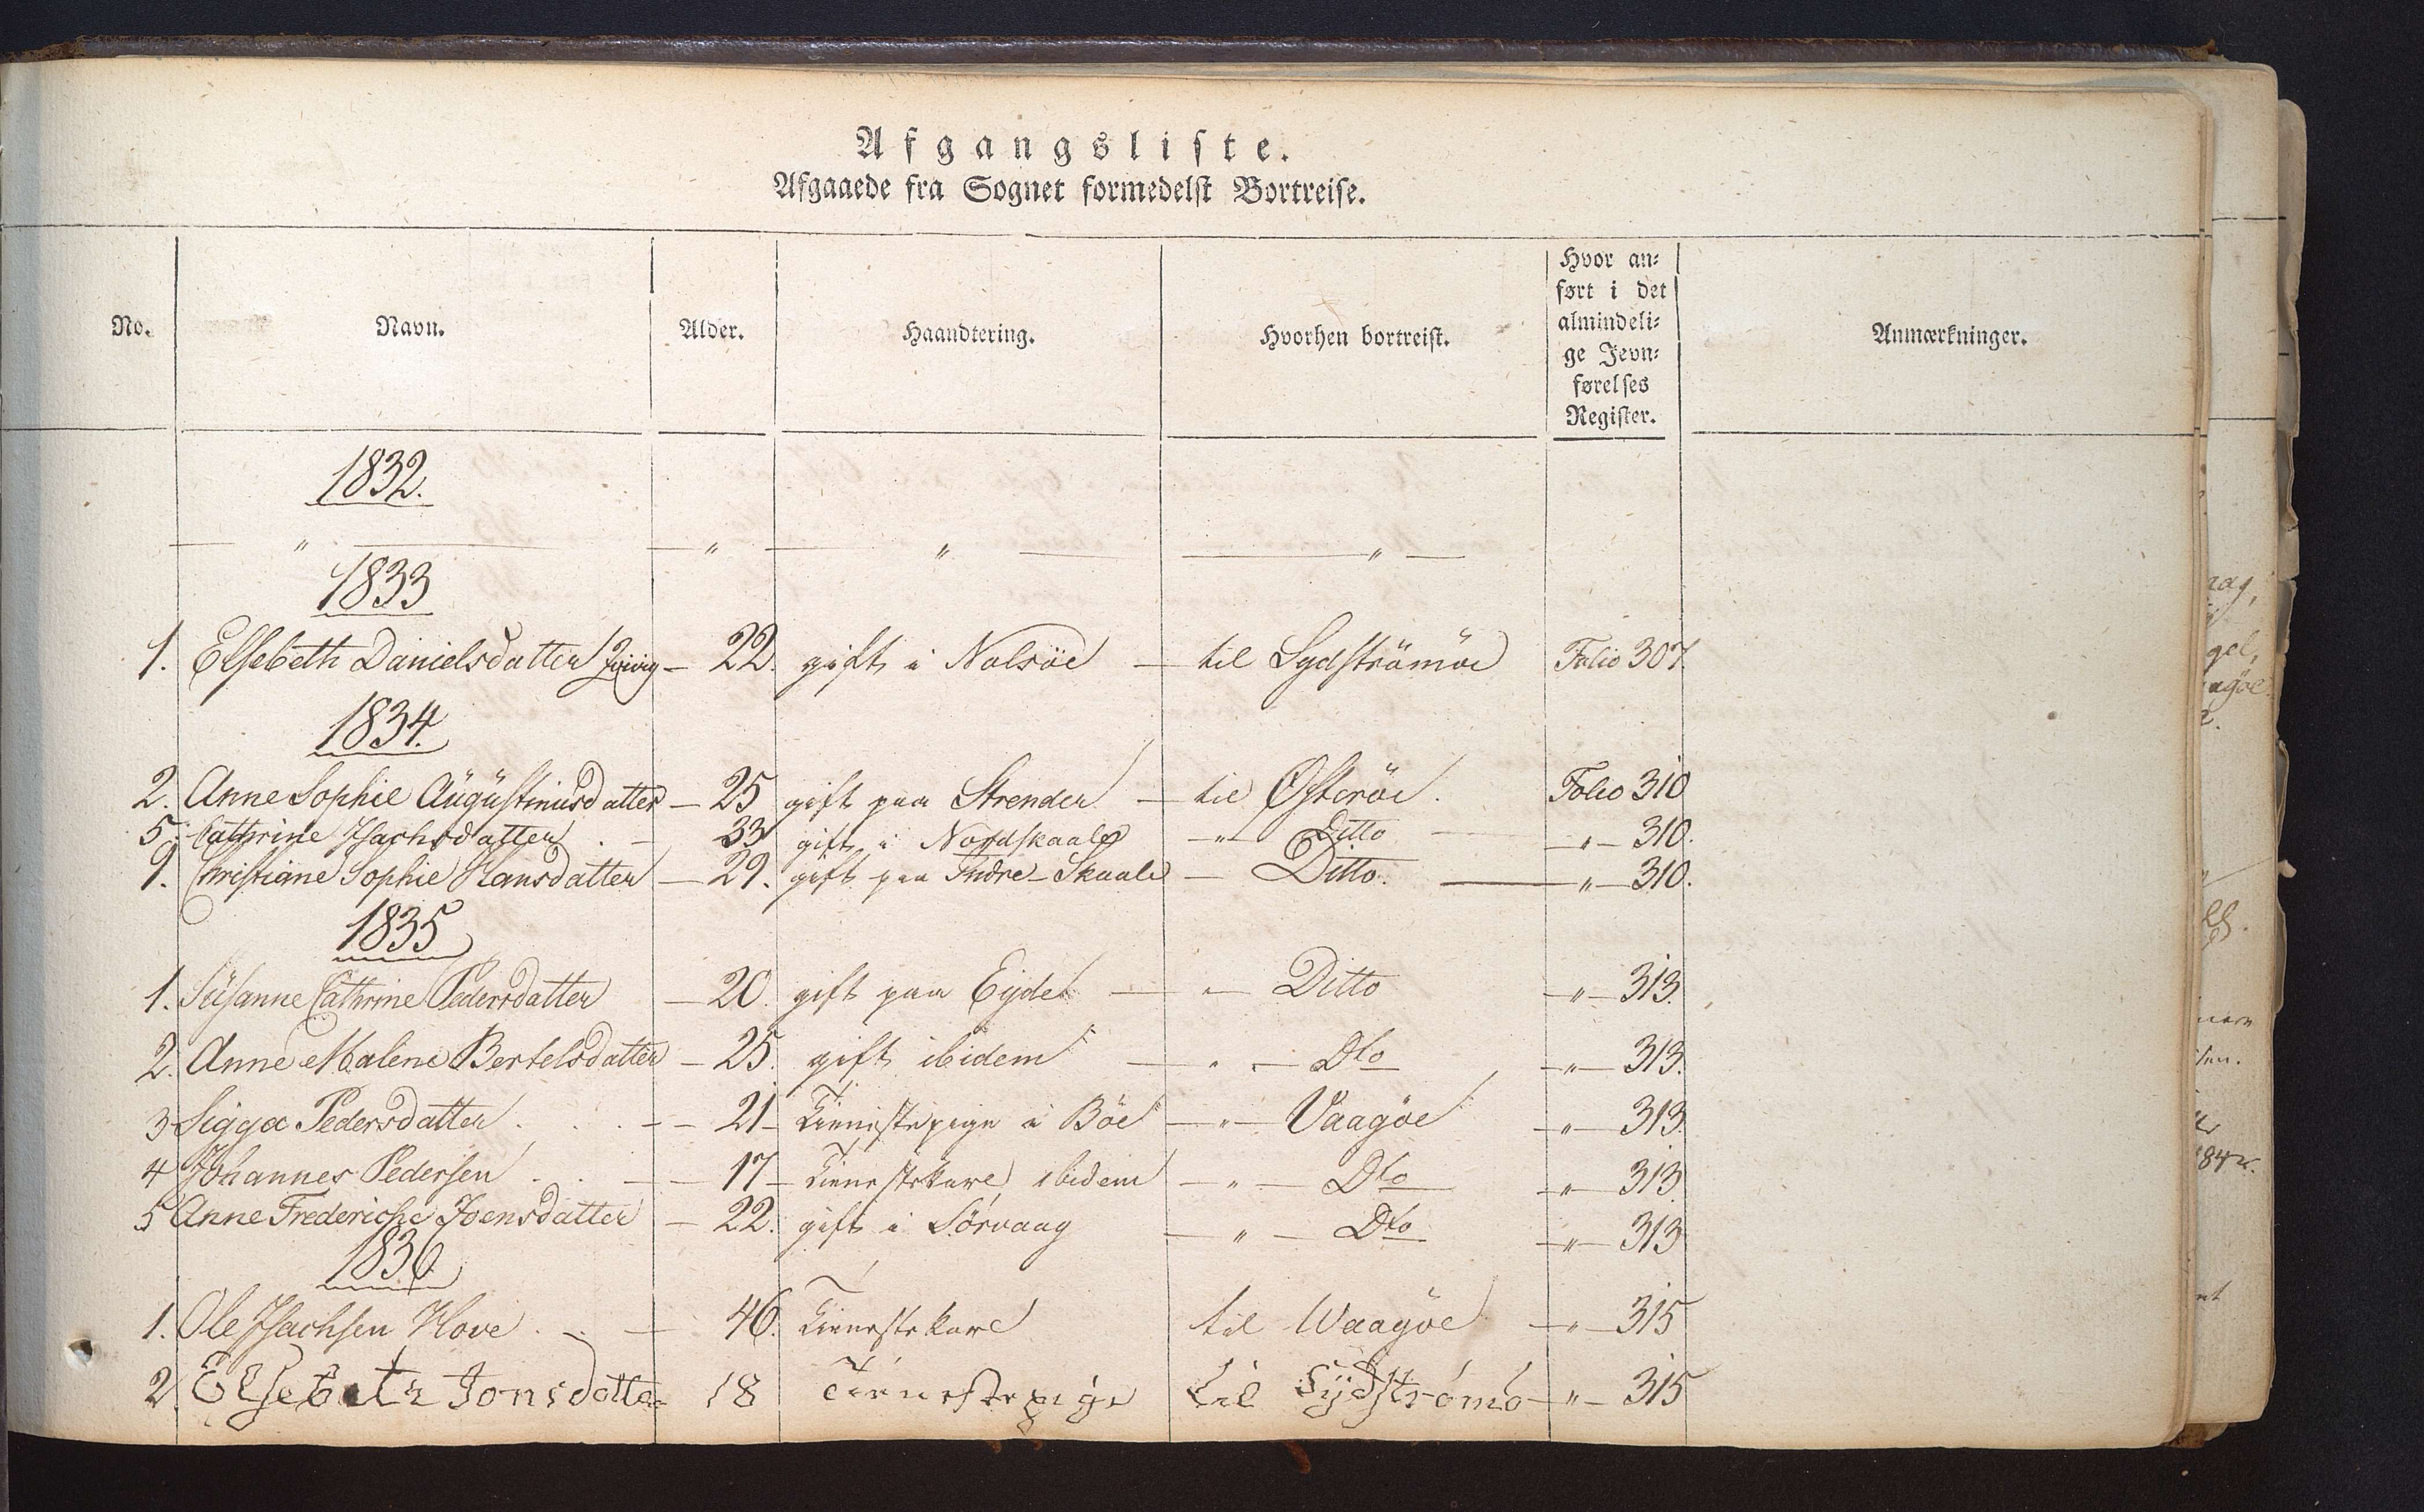 Afgangsliste.
Afgaaede fra Sognet formedelst Bortreise.
No. Navn. Alder. Haandtering. Hvorhen bortreist. Hvor an-
ført i det
almindeli-
ge Jevn-
førelses
Register. Anmærkninger.
1832.
— " — — " — — " — — " —
1833
1. Elsebeth Danielsdatter — 22. gift i Nolsöe — til Sydströmöe Folio 307.
1834.
2. Anne Sophie Augustinusdatter — 25 gift paa Strender — til Österöe. Folio 310
5. Cathrine Isachsdatter . — 33 gift i Nordskaale — " — Ditto — " — 310.
9. Christiane Sophie Hansdatter — 29. gift paa Indre-Skaale — Ditto. — " — 310.
1835
1. Süsanne Cathrine Pedersdatter — 20. gift paa Eydet — " — Ditto — " — 313.
2. Anne Malene Bertelsdatter — 25. gift ibidem — " — Dto — " — 313.
3 Sigga Pedersdatter . . . — 21 — Tienestepige i Böe — " — Vaagöe — " — 313.
4 Johannes Pedersen . . — 17 — Tienestekarl ibidem — " — Dto — " — 313
5 Anne Frederiche Joensdatter — 22. gift i Sörvaag — " — Dto — " — 313
1836
1. Ole Isachsen Hove . . — 46. Tienestekarl til Waagöe — " — 315
2. Elsebeth Jonsdatter 18 Tienestepige til Sydströmö — " — 315